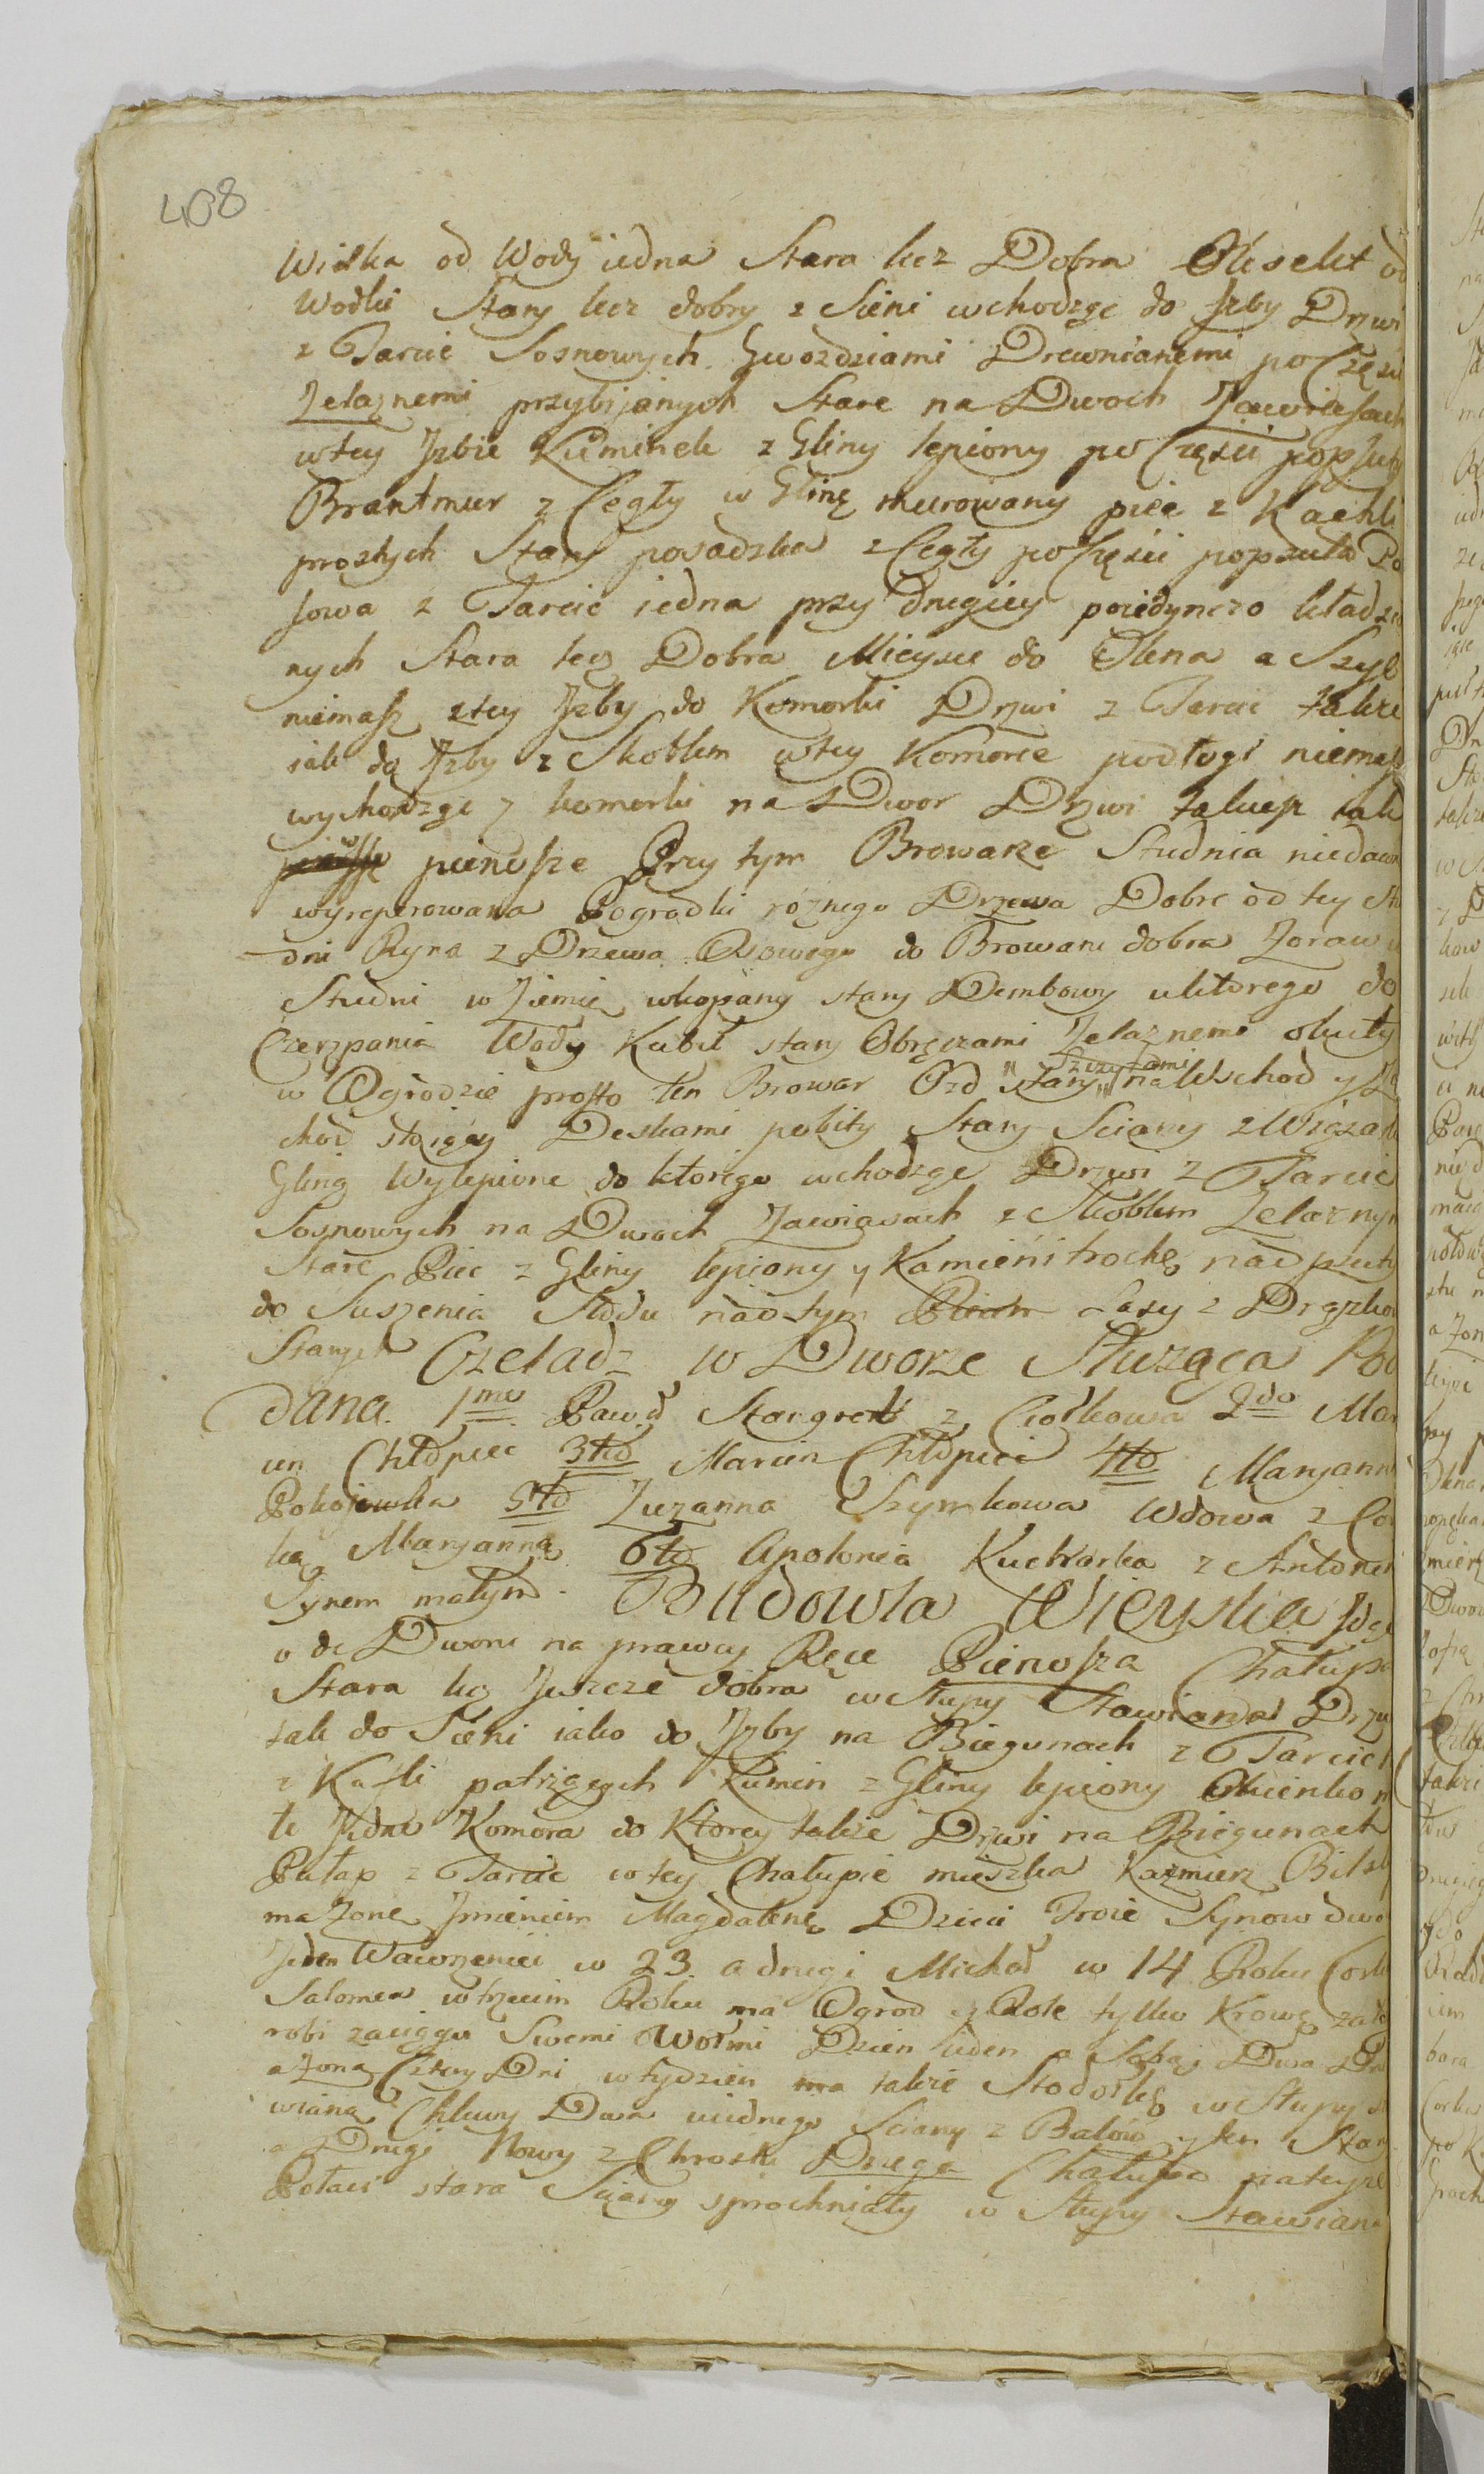 408
Wielka od Wody iedna Stara lecz Dobra od
Wodki Stary lecz dobry z Sieni wchodząc do Jzby Drzwi
z Tarcic Sosnowych Gwozdziami Drewnianemi po Części
Żelaznemi przybijanych Stare na Dwoch Zawiasach
w tey Jzbie Kuminek z Gliny lepiony po Części popsuty
Brantmur z Cegły w Glinę murowany piec z Kachli
prostych Stary posadzka z Cegły po Części popsuta Po
sowa z Tarcic iedna przy drugiey poiedynczo kładzio
nych Stara lecz Dobra Mieysce do Okna a Szyb
niemasz z tey Jzby do Komorki Drzwi z Tarcic takie
iak do Jzby z Skoblem w tey Komorce podłogi niemasz
wychodząc z komorki na Dwor Drzwi takież iak
pierwsze Przy tym Browarze Studnia niedawn
wyreperowana Ogrodki różnego Drzewa Dobre od tey Stu
dni Ryna z Drzewa Osowego do Browaru dobra Zoraw u
Studni w Ziemię wkopany stary Dembowy u ktorego do
Czerpania Wody Kubeł stary Obręczami Zelaznemi okuty
w Ogrodzie prosto ten Browar Ozd Stary "Szczytami" na Wschod y Za
chod stoiący Deskami pobity Stary Sciany z Wiązań
Gliną Wylepione do ktorego wchodząc Drzwi z Tarcic
Sosnowych na Dwoch Zawiasach z Skoblem Żelaznym
Stare Piec z Gliny lepiony y Kamieni trochę nadpsuty
do Suszenia Słodu nad tym Piecem Lasy z Drążkow
Starych Czeladz w Dworze Służąca Pod
dana. 1mo Paweł Stangret z Ciołkowa 2do Mar
cin Chłopiec 3tio Marcin Chłopiec 4to Maryanna
Pokojowka 5to Zuzanna Szymkowa Wdowa z Cor
ką Maryanną 6to Apolonia Kucharka z Antonim
Synem małym. Budowla Wieyska Jdąc
ode Dworu na prawey Ręce Pierwsza Chałupa
Stara lecz Jeszcze dobra w Słupy Stawiana Drzwi
tak do Sieni iako do Jzby na Biegunach z Tarcic
z Kafli patrzących Kumin z Gliny lepiony Okienko m
łe Jedne Komora do Ktorey takie Drzwi na Biegunach
Pułap z Tarcic w tey Chałupie mieszka Kazmierz Bilsk
ma Zonę Jmieniem Magdalenę Dzieci Troie Synow dwo
Jeden Wawrzeniec w 23. a drugi Michał w 14 Roku Corka
Salomea w trzecim Roku ma Ogrod y Role tylko Krowę zał
robi zaciągu Swemi Wołmi Dzien ieden a Sobą Dwa Dni
a Zona Cztery Dni w tydzien ma takie Stodołkę w Słupy st
wianą Chlewy Dwa u iednego Sciany z Balów y ten Stary
a Drugi Nowy z Chrostu Druga Chałupa na teyże
Połaci stara Sciany sprochniały w Słupy Stawiana